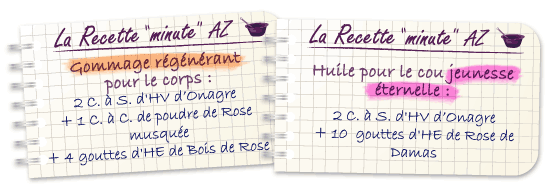 La Recette "minute" AZ
Gommage régénérant
pour le corps :
2 C. à S. d'HV d'Onagre
+ 1 C. à C. de poudre de Rose
musquée
+ 4 gouttes d'HE de Bois de Rose
La Recette "minute" AZ
Huile pour le cou jeunesse
éternelle :
2 C. à S. d'HV d'Onagre
+ 10 gouttes d'HE de Rose de
Damas